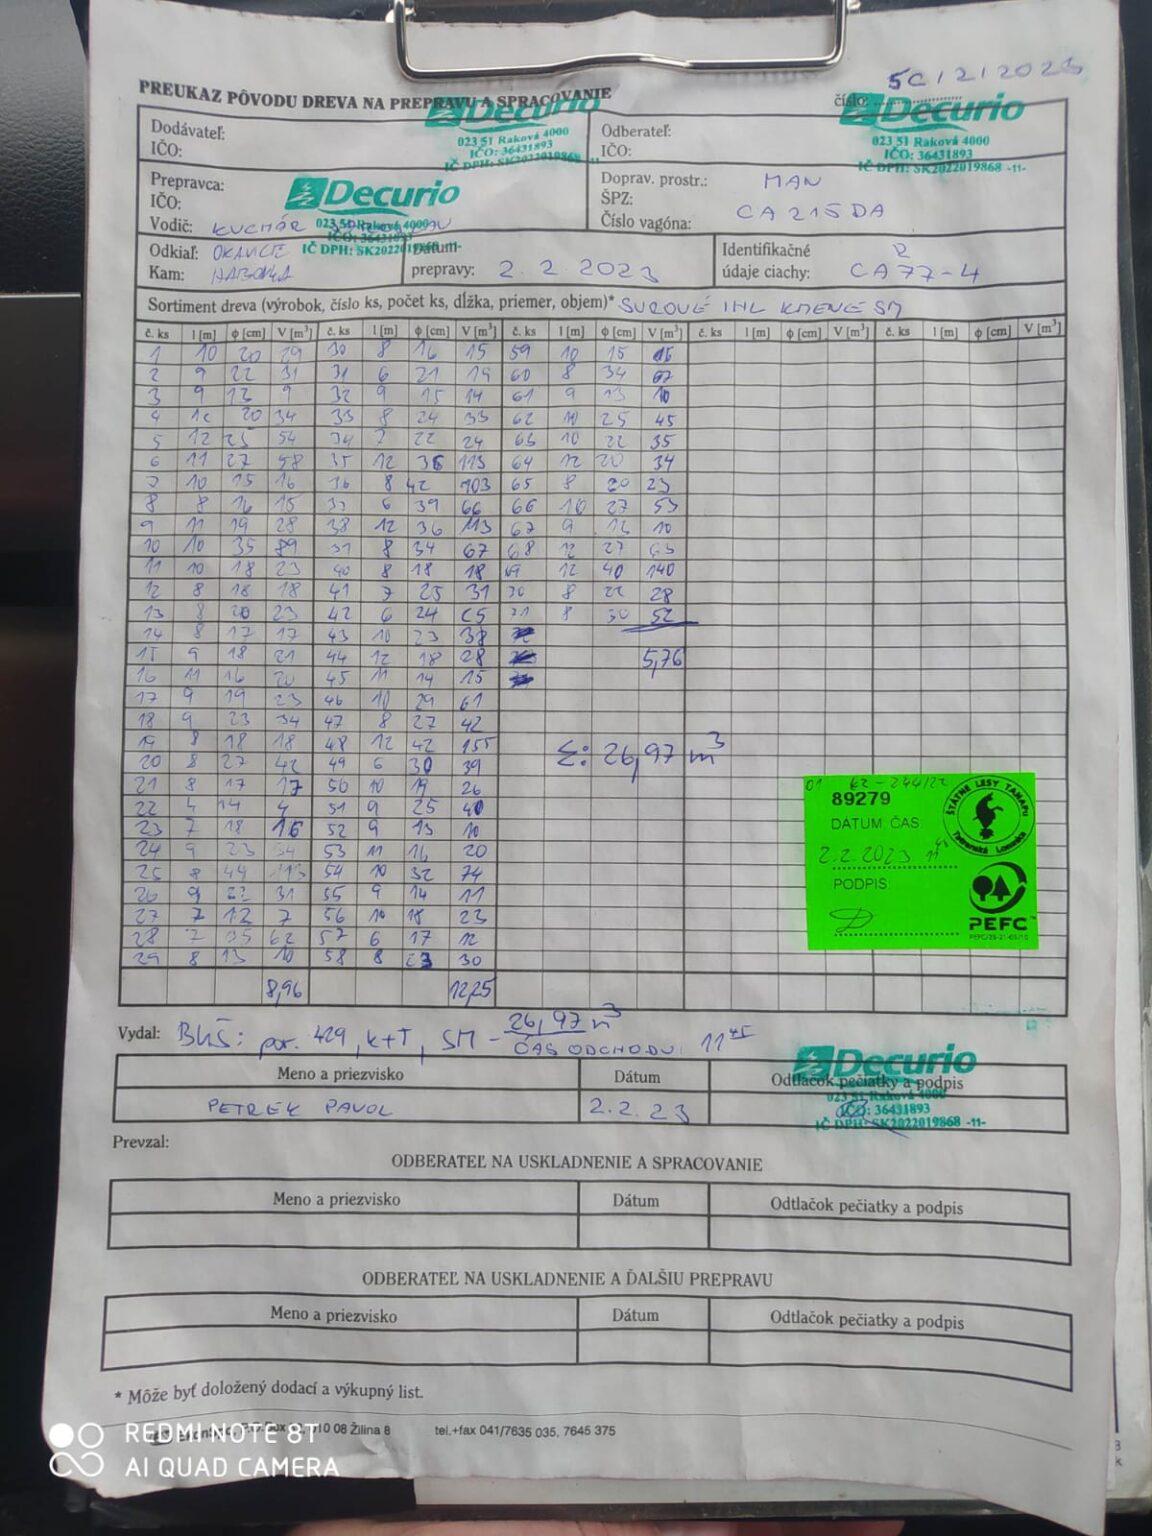 5C/2/2023
PREUKAZ PÔVODU DREVA NA PREPRAVU A SPRACOVANIE
číslo:
Decurio
023 51 Raková 4000
IČO: 36431893
IČ DPH: SK2022019868 -11-
Decurio
023 51 Raková 4000
IČO: 36431893
IČ DPH: SK2022019868 -11-
Dodávateľ:
IČO:
Odberateľ:
IČO:
Prepravca:
IČO:
Vodič: KUCHÁR
Decurio
023 51 Raková 4000
IČO: 36431893
IČ DPH: SK2022019868 -11-
Doprav. prostr.: MAN
ŠPZ:
Číslo vagóna: CA215DA
Odkiaľ:
Kam:
Dátum
prepravy: 2.2.2023
Identifikačné
údaje ciachy: 2 CA77-4
Sortiment dreva (výrobok, číslo ks, počet ks, dĺžka, priemer, objem)* SUROVÉ IHL KMENE SM
č. ks l [m] ϕ [cm] V [m³] č. ks l [m] ϕ [cm] V [m³] č. ks l [m] ϕ [cm] V [m³] č. ks l [m] ϕ [cm] V [m³] č. ks l [m] ϕ [cm] V [m³]
1 10 20 29 30 8 16 15 59 10 15
2 9 22 31 31 6 21 19 60 8 34 67
3 9 13 9 32 9 15 14 61 9 13 10
4 20 34 33 8 24 33 62 10 25 45
5 12 25 54 34 7 22 24 63 10 22 35
6 11 27 58 35 12 36 113 64 12 20 34
7 10 15 16 36 8 42 103 65 8 20 23
8 8 16 15 37 6 39 66 66 10 27 53
9 11 19 28 38 12 36 113 67 9 10
10 10 35 89 39 8 34 67 68 12 27 63
11 10 18 23 40 8 18 18 69 12 40 140
12 8 18 18 41 7 25 31 70 8 22 28
13 8 20 23 42 6 24 25 71 8 30 52
14 8 17 17 43 10 23 38
15 9 18 21 44 12 18 28 5,76
16 11 16 20 45 11 14 15
17 9 19 23 46 10 29 61
18 9 23 34 47 8 27 42
19 8 18 18 48 12 42 155
Σ: 26,97 m³
20 8 27 42 49 6 30 39
21 8 17 17 50 10 19 26
22 4 14 4 51 9 25 40
23 7 18 16 52 9 13 10
24 9 23 34 53 11 16 20
25 8 44 113 54 10 32 74
26 9 22 31 55 9 14 11
27 7 12 7 56 10 18 23
28 7 35 62 57 6 17 12
29 8 13 10 58 8 23 30
8,96 12,25
89279
DATUM ČAS:
2.2.2023 11
PODPIS:
ŠTÁTNE LESY TANAPU
Tatranská Lomnica
PEFC
Vydal: por. 429, k+T, SM - 26,97 m³
ČAS ODCHODU: 11⁴⁵
Meno a priezvisko Dátum Odtlačok pečiatky a podpis
PETREK PAVOL 2.2.23
Decurio
023 51 Raková 4000
IČO: 36431893
IČ DPH: SK2022019868 -11-
Prevzal:
ODBERATEĽ NA USKLADNENIE A SPRACOVANIE
Meno a priezvisko Dátum Odtlačok pečiatky a podpis
ODBERATEĽ NA USKLADNENIE A ĎALŠIU PREPRAVU
Meno a priezvisko Dátum Odtlačok pečiatky a podpis
* Môže byť doložený dodací a výkupný list.
010 08 Žilina 8 tel.+fax 041/7635 035, 7645 375
REDMI NOTE 8T
AI QUAD CAMERA